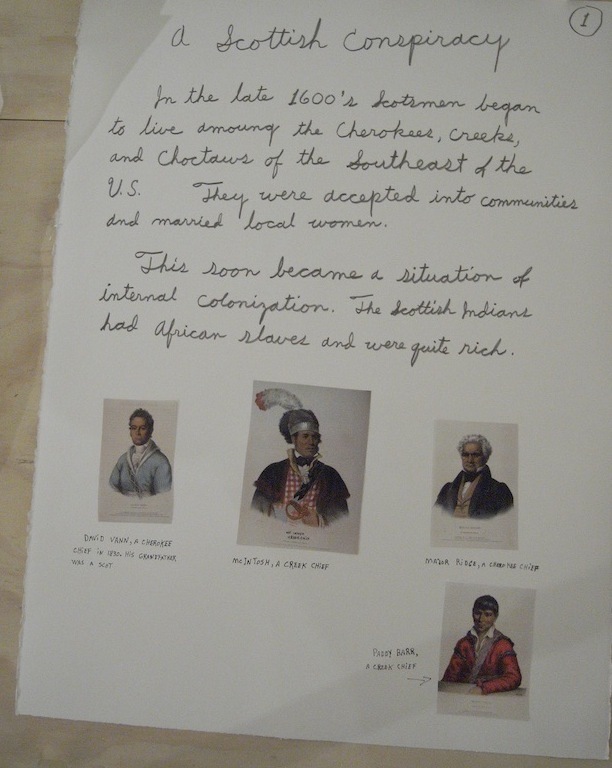 1
A Scottish Conspiracy
In the late 1600's Scotsmen began
to live amoung the Cherokees, Creeks,
and Choctaws of the Southeast of the
U.S. They were accepted into communities
and married local women.
This soon became a situation of
internal colonization. The Scottish Indians
had African slaves and were quite rich.
DAVID VANN, A CHEROKEE
CHIEF IN 1830. HIS GRANDFATHER
WAS A SCOT
MCINTOSH, A CREEK CHIEF
MAJOR RIDGE, A CHEROKEE CHIEF
PADDY BARR,
A CREEK CHIEF